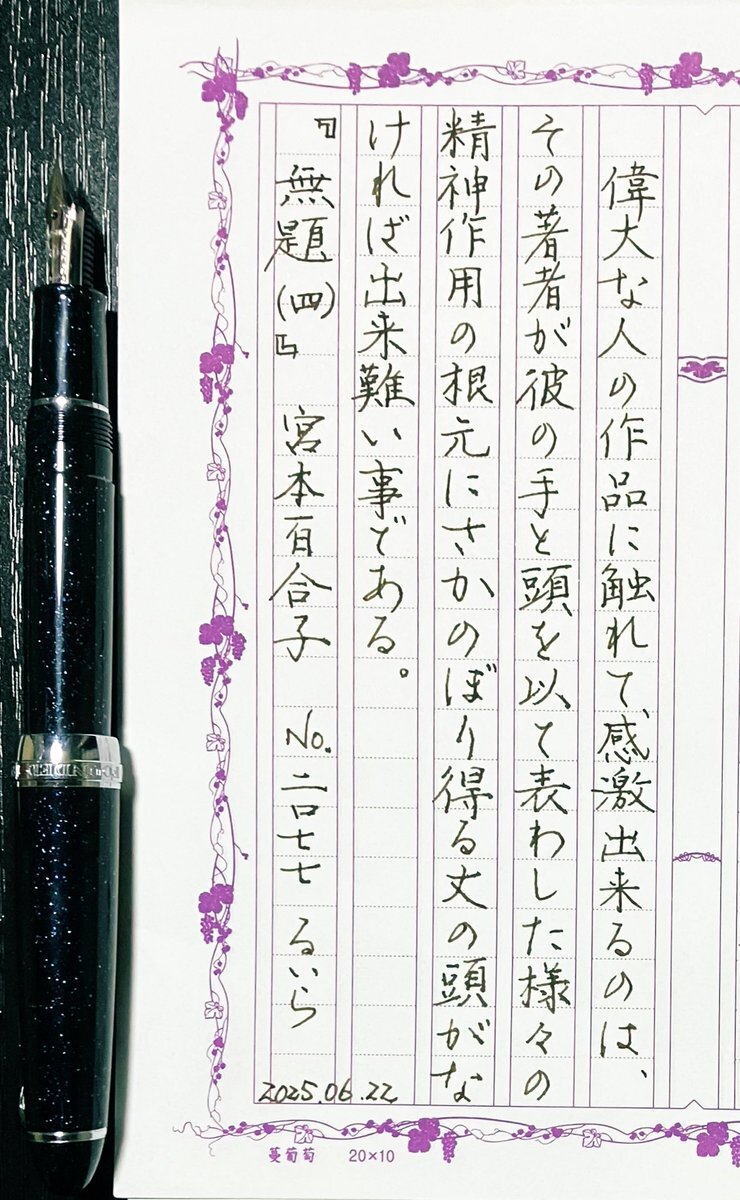 偉大な人の作品に触れて、感激出来るのは、
その著者が彼の手と頭を以て表わした様々の
精神作用の根元にさかのぼり得る丈の頭がな
ければ出来難い事である。
『無題(四)』 宮本百合子 No.二〇七七 るいら
2025.06.22
蔓葡萄 20×10